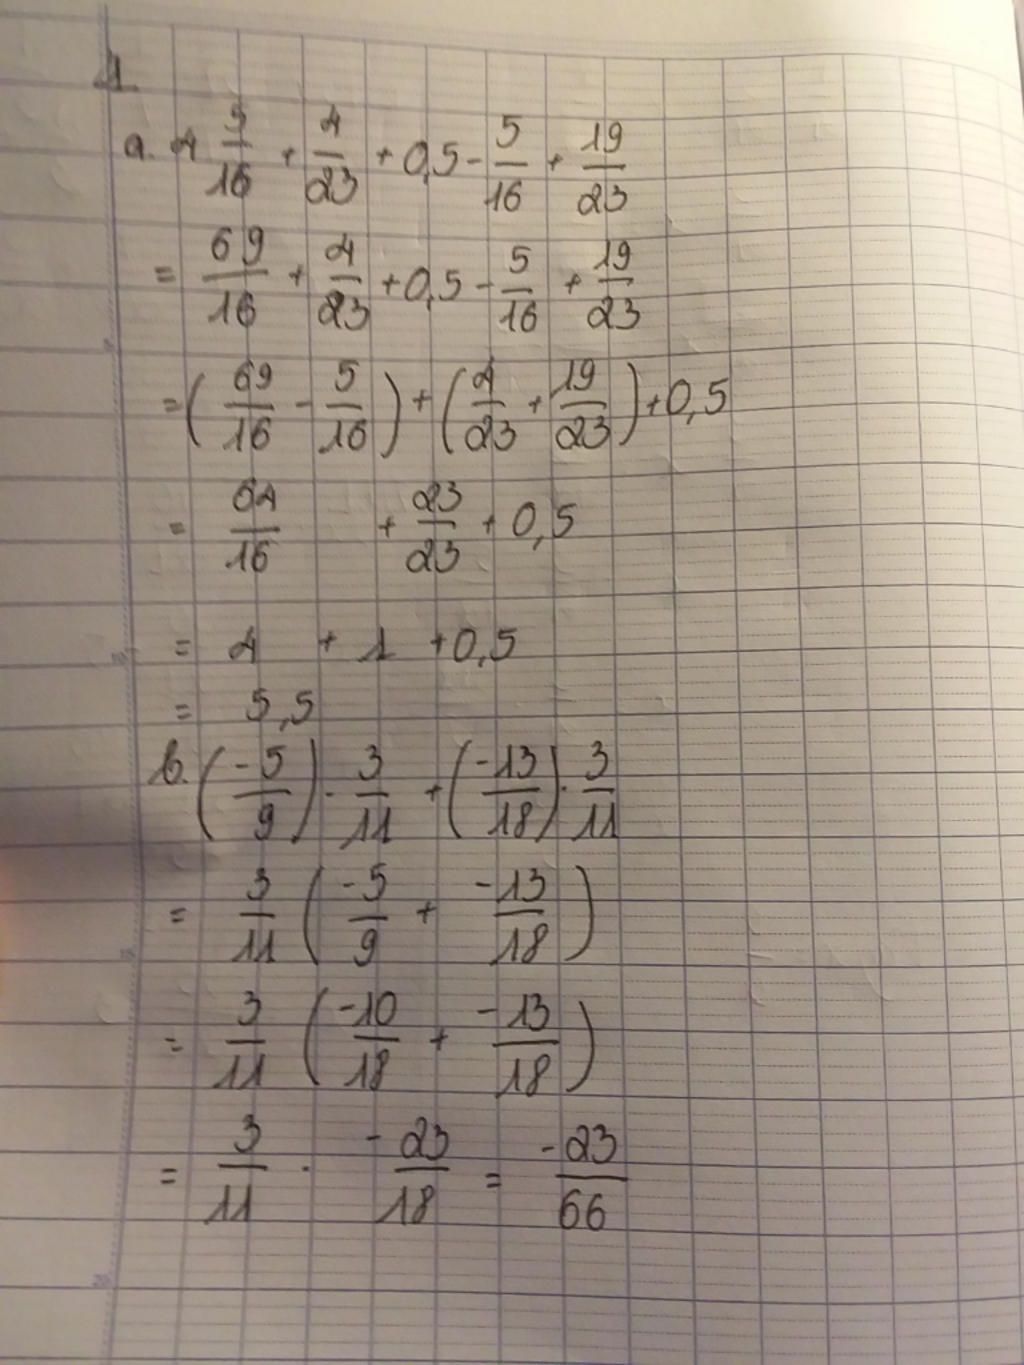 1.
a. 4 5/16 + 4/23 + 0,5 - 5/16 + 19/23
= 69/16 + 4/23 + 0,5 - 5/16 + 19/23
= (69/16 - 5/16) + (4/23 + 19/23) + 0,5
= 64/16 + 23/23 + 0,5
= 4 + 1 + 0,5
= 5,5
b. (-5/9) . 3/11 + (-13/18) . 3/11
= 3/11 (-5/9 + -13/18)
= 3/11 (-10/18 + -13/18)
= 3/11 . -23/18 = -23/66